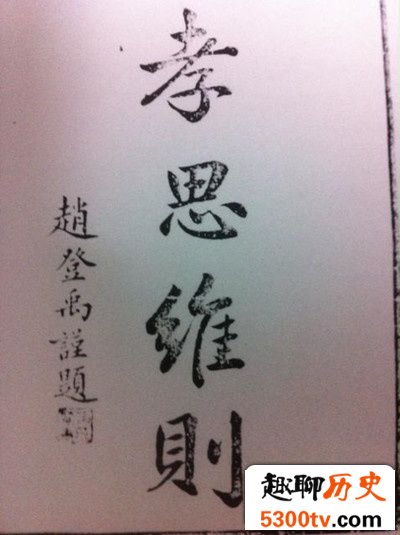 孝思維則
趙登禹謹題
趣聊历史
5300tv.com